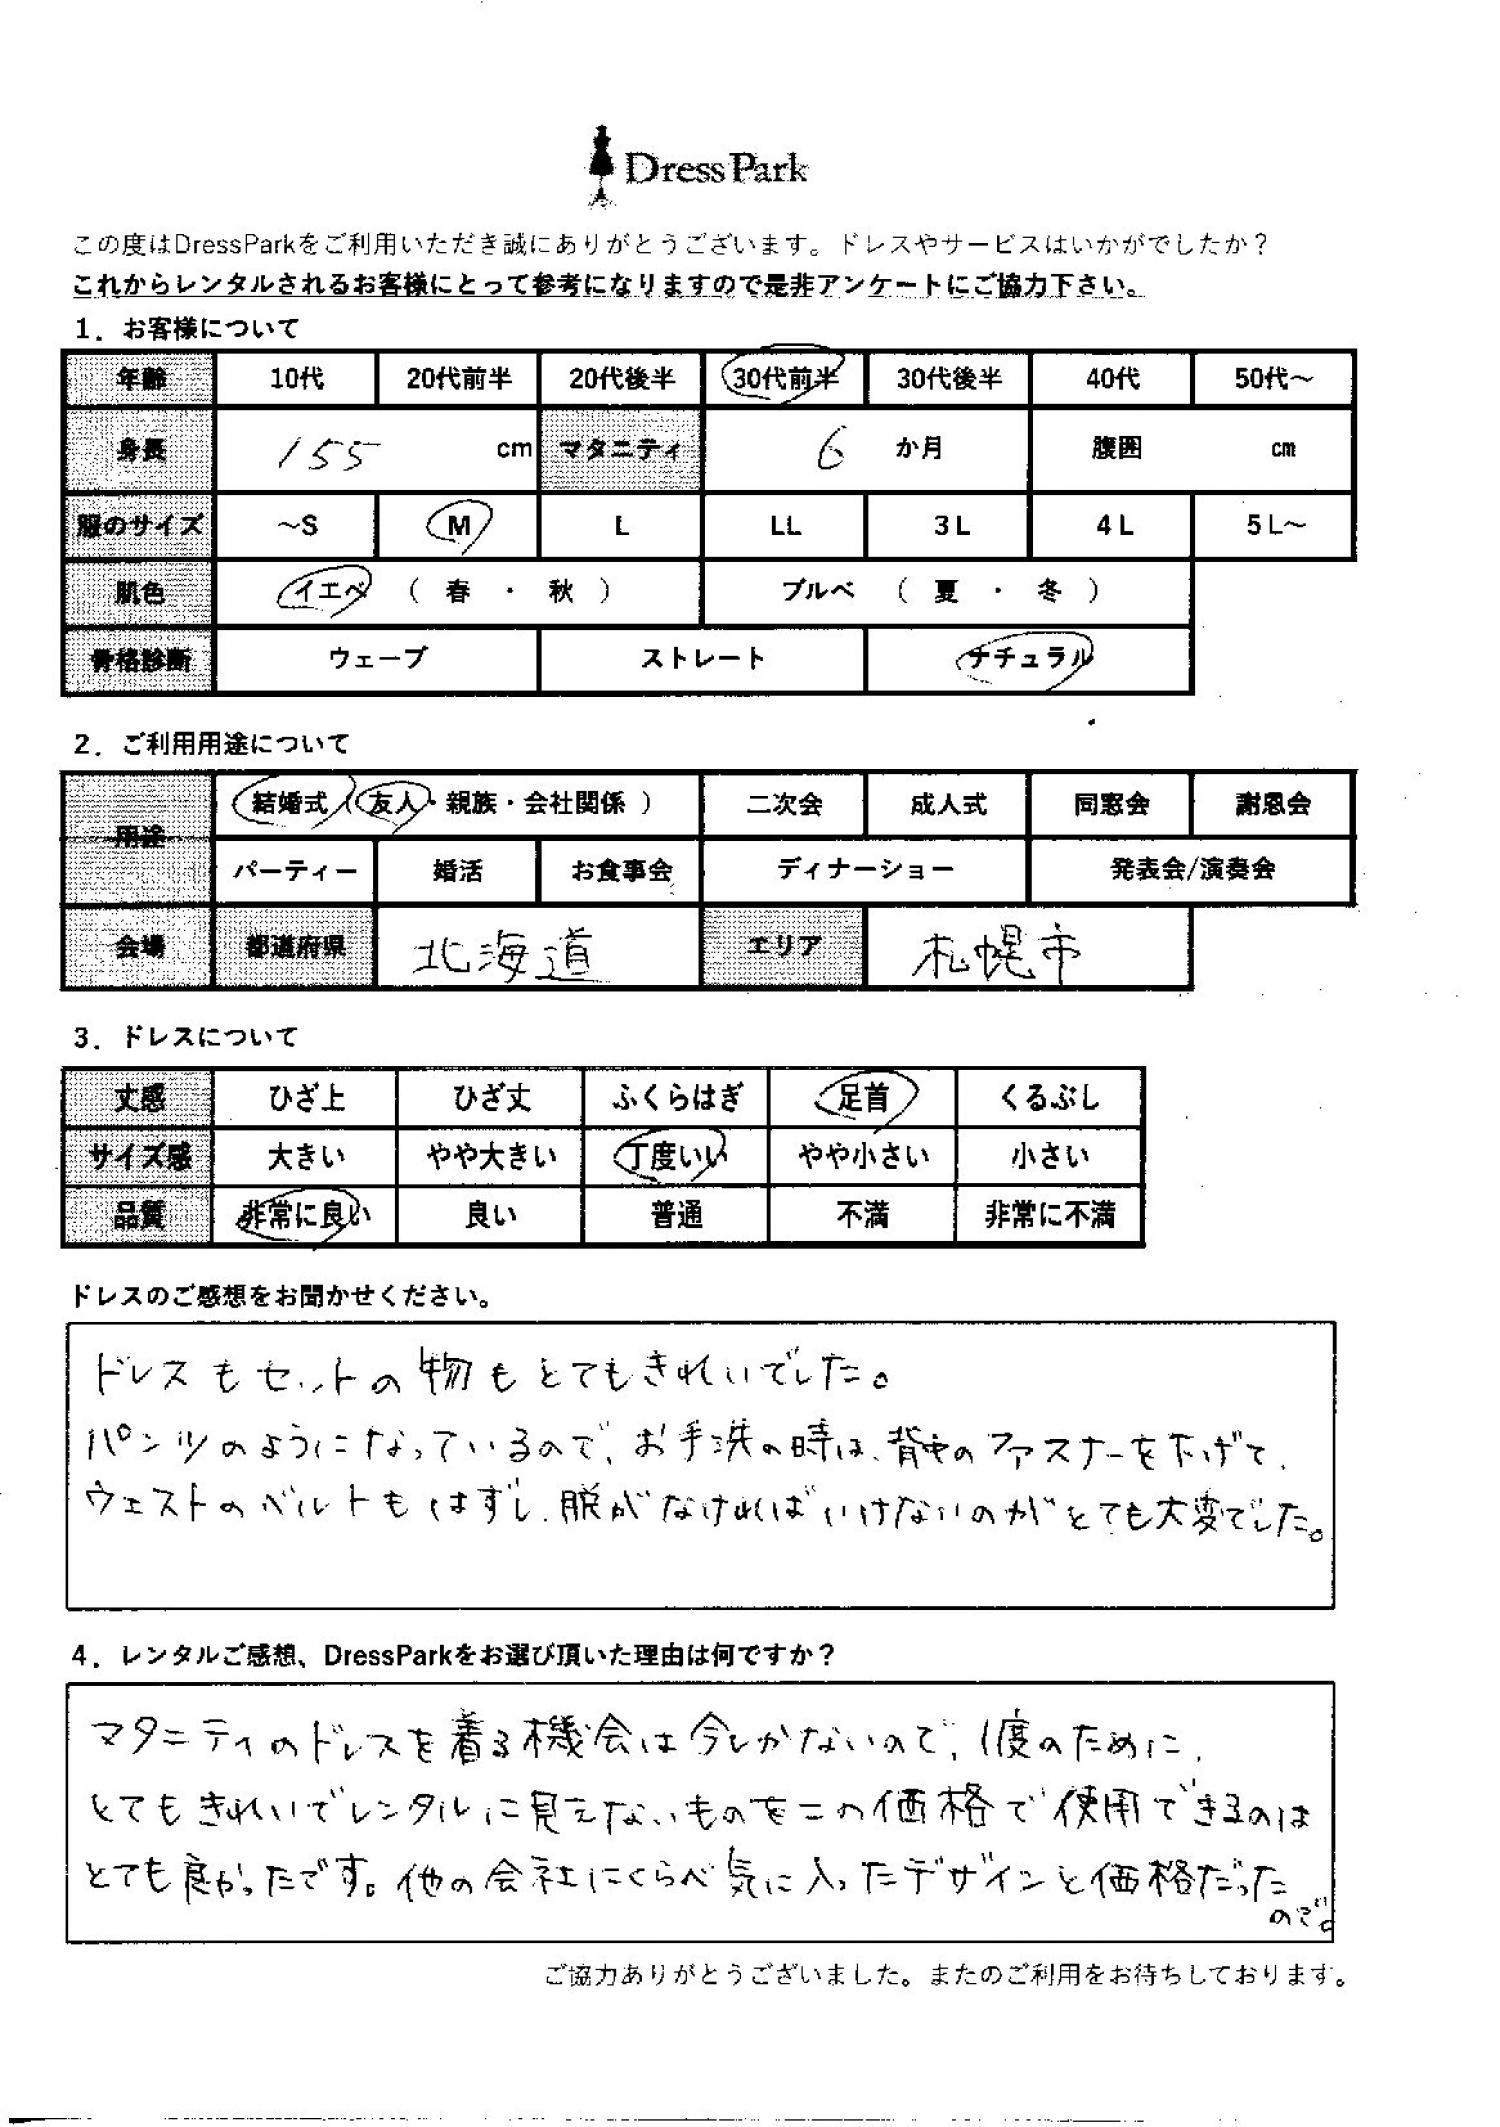 DressPark
この度はDressParkをご利用いただき誠にありがとうございます。ドレスやサービスはいかがでしたか？
これからレンタルされるお客様にとって参考になりますので是非アンケートにご協力下さい。
1．お客様について
年齢 10代 20代前半 20代後半 30代前半 30代後半 40代 50代～
身長 155 cm マタニティ 6 か月 腹囲 cm
服のサイズ ～S M L LL 3L 4L 5L～
肌色 イエベ （ 春 ・ 秋 ） ブルベ （ 夏 ・ 冬 ）
骨格診断 ウェーブ ストレート ナチュラル
2．ご利用用途について
用途 結婚式（友人・親族・会社関係 ） 二次会 成人式 同窓会 謝恩会
パーティー 婚活 お食事会 ディナーショー 発表会/演奏会
会場 都道府県 北海道 エリア 札幌市
3．ドレスについて
丈感 ひざ上 ひざ丈 ふくらはぎ 足首 くるぶし
サイズ感 大きい やや大きい 丁度いい やや小さい 小さい
品質 非常に良い 良い 普通 不満 非常に不満
ドレスのご感想をお聞かせください。
ドレスもセットの物もとてもきれいでした。
パンツのようになっているので、お手洗の時は、背中のファスナーを下げて、
ウェストのベルトもはずし、脱がなければいけないのがとても大変でした。
4．レンタルご感想、DressParkをお選び頂いた理由は何ですか？
マタニティのドレスを着る機会は今しかないので、1度のために、
とてもきれいでレンタルに見えないものをこの価格で使用できるのは
とても良かったです。他の会社にくらべ気に入ったデザインと価格だった
ので。
ご協力ありがとうございました。またのご利用をお待ちしております。